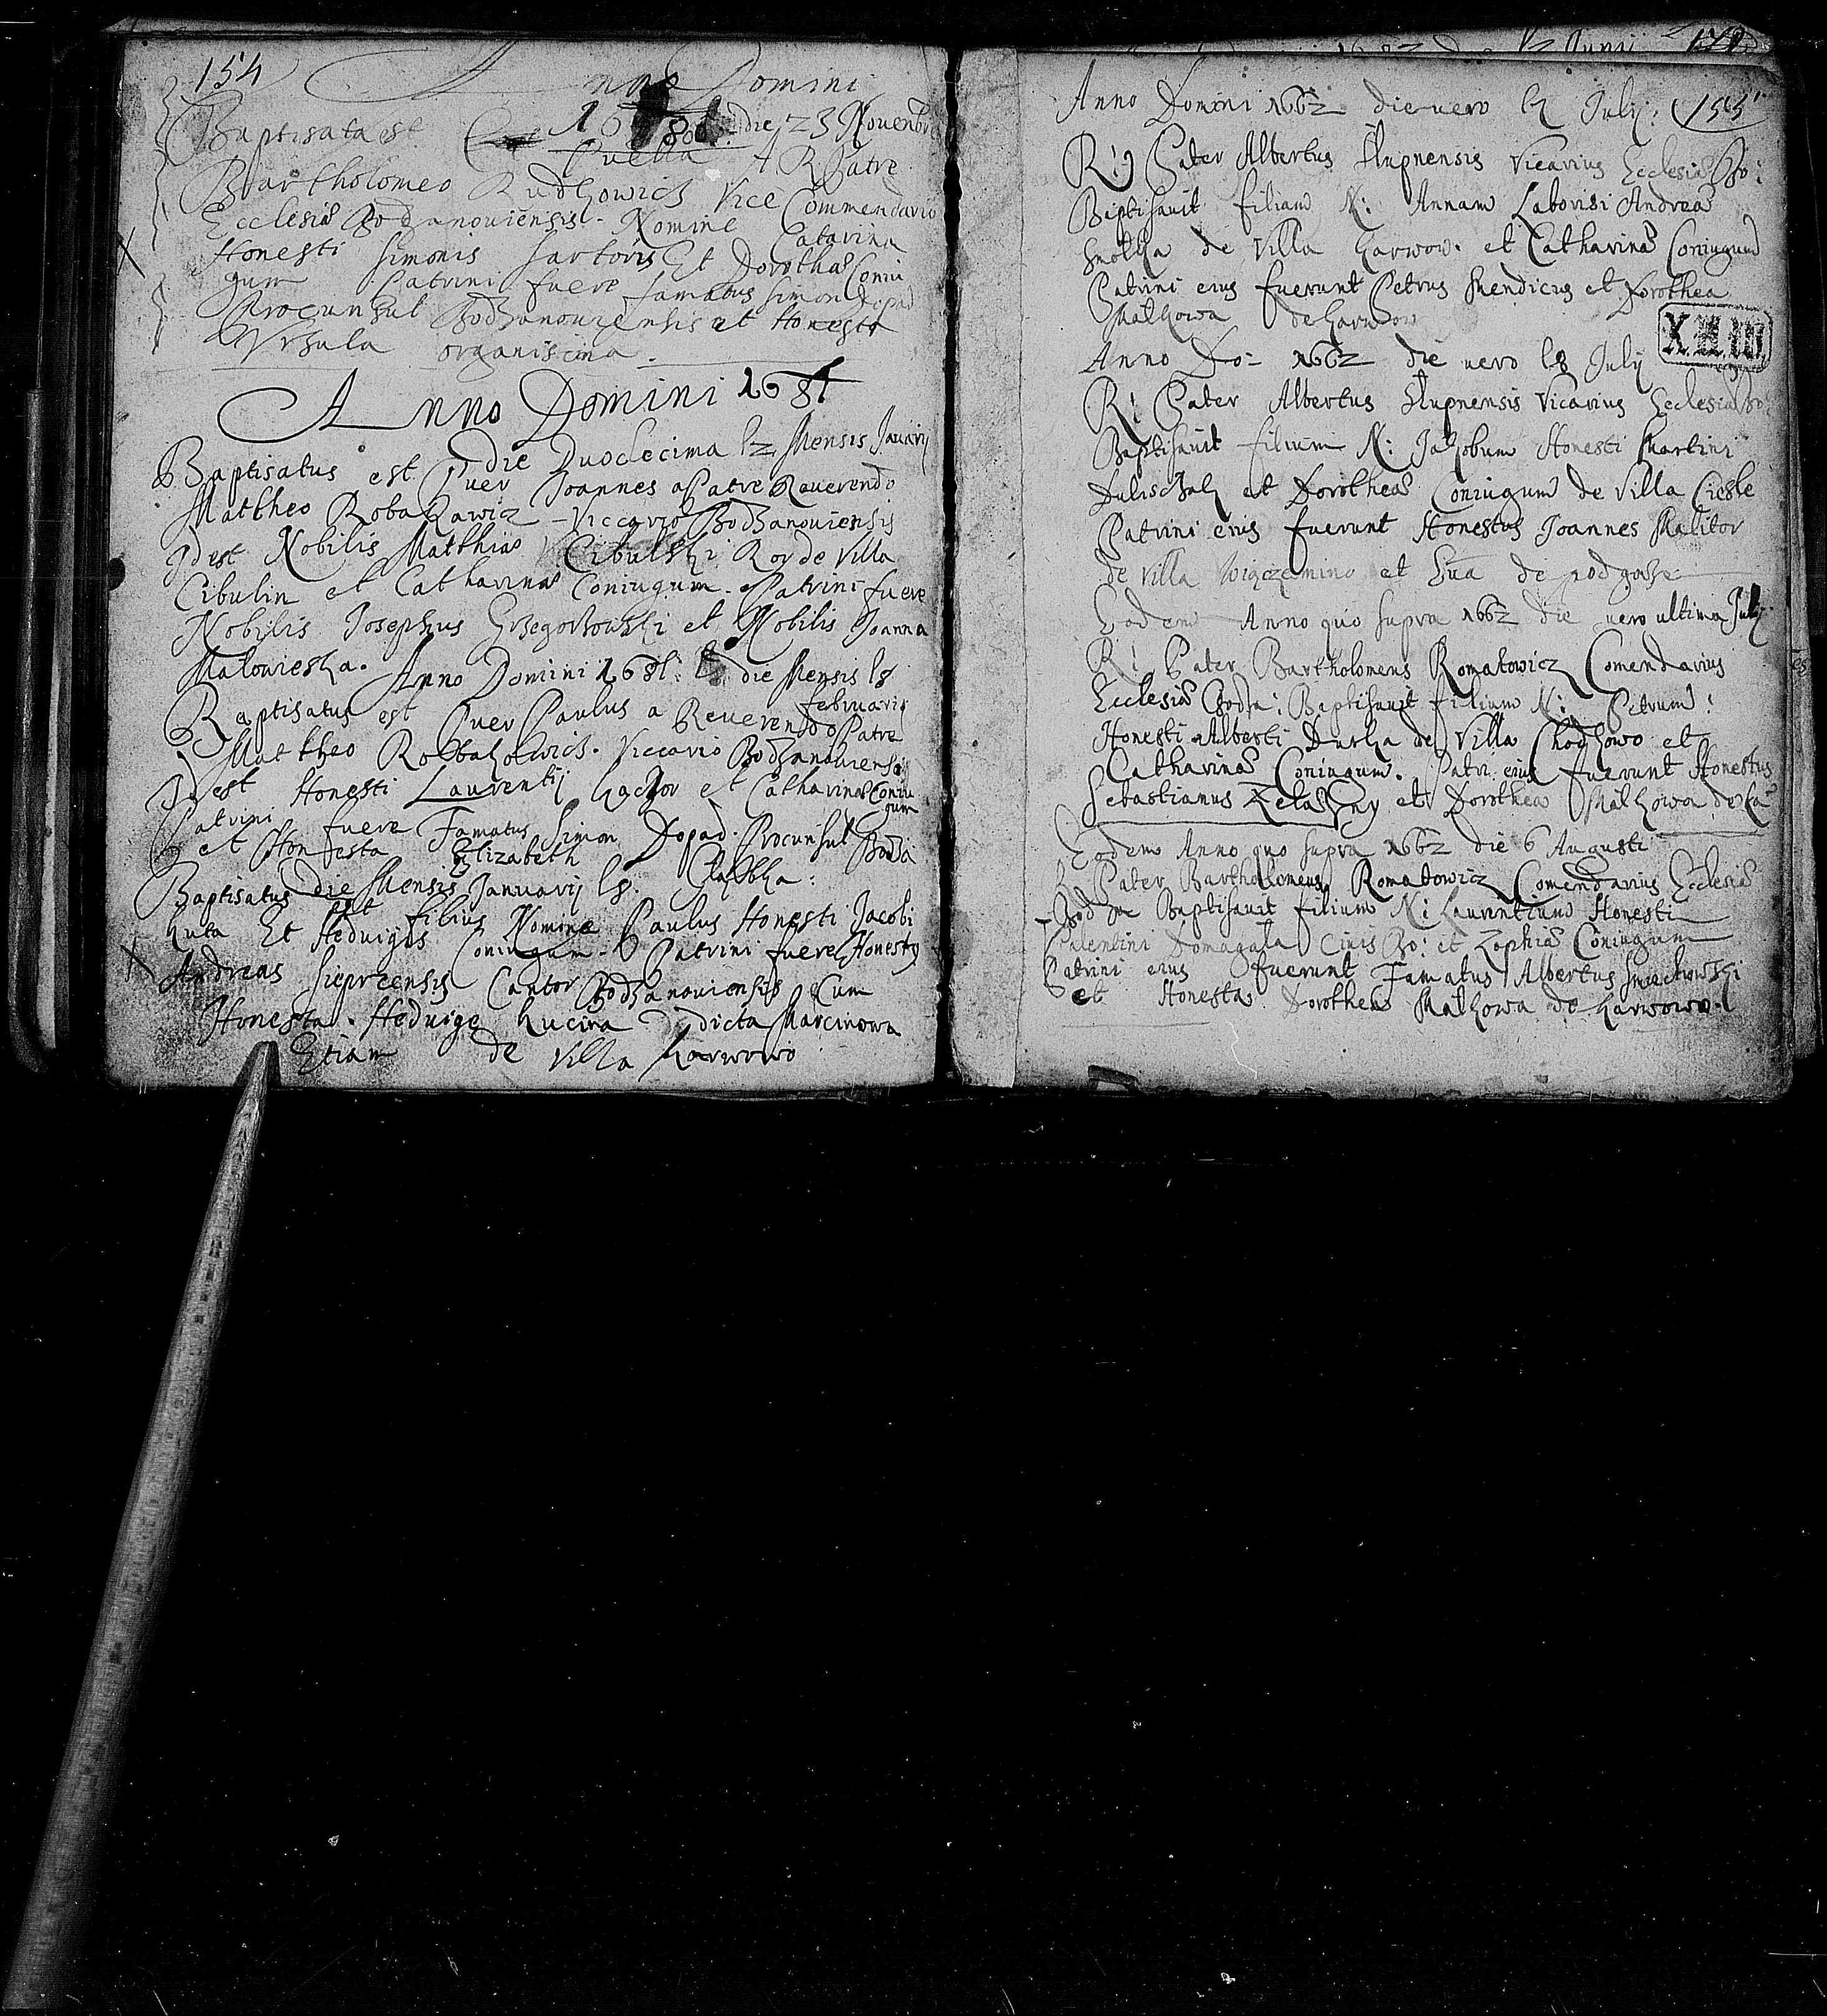 154
Anno Domini
1680 die 23 Novenbr
Baptisata est Puella A R Patre
Bartholomeo Rudkowich Vice Commendario
Ecclesiæ Bodzanouiensis. Nomine Catarina
Honesti Simonis Sartoris Et Dorothæ Coniu
gum Patrini fuere famatus Simon Dopad
Proconsul Bodzanouiensis et Honesta
Vrsula organiscina.
Anno Domini 1681
die Duodecima 12 Mensis Januarij
Baptisatus est Puer Joannes a Patre Rauerendo
Mattheo Robakawicz Viccario Bodzanouiensis
Jdest Nobilis Matthiæ Cibulski Roy de Villa
Cibulin et Catharinæ Coniugum. Patrini fuere
Nobilis Josephus Grzegorzowski et Nobilis Joanna
Malowieska.
Anno Domini 1681: die Mensis 18
februarij
Baptisatus est Puer Paulus a Reuerendo Patre
Mattheo Robakowich. Viccario Bodzanouiensi
Jdest Honesti Laurentij Kaczor et Catharinæ Coniu
gum
Patrini fuere Famatus Simon Dopad. Procunsul Bodza
et Honesta Elizabeth
die Mensis Januarij 18.
Baptisatus est filius Nomine Paulus Honesti Jacobi
Kuta Et Heduigis Coniugum Patrini fuere Honesty
Andreas Sieprcensis Cantor Bodzanouiensis Cum
Honesta. Heduige Kucina dicta Marcinowa
Etiam de Villa Karwowo
170
Anno Domini 1662 die uero 12 Julij: 155
R: Pater Albertus Slupnensis Vicarius Ecclesiæ Bo:
Baptisauit filiam N: Annam Laborisi Andreæ
Smolka de Villa Karwow. et Catharinæ Coniugum
Patrini eius fuerunt Petrus Mendicus et Dorothea
Malkowa de Karwow
XIII
Anno Do= 1662 die uero 18 July
R: Pater Albertus Slupnensis Vicarius Ecclesiæ Bo:
Baptisauit filium N: Jakobum Honesti Martini
et Dorotheæ Coniugum de Villa Ciesle
Patrini eius fuerunt Honestus Joannes Malitor
de Villa Wiączemino et Eua de podgorze
Eodem Anno quo supra 1662 die uero ultima July
R: Pater Bartholomeus Romatowicz Comendarius
Ecclesiæ Bodza: Baptisauit filium N: Petrum:
Honesti Alberti Durka de Villa Chodkowo et
Catharinæ Coniugum. Patri: eius fuerunt Honestus
Sebastianus Zelazny et Dorothea Malkowa de Ka
Eodem Anno quo supra 1662 die 6 Augusti
R Pater Bartholomeus Romatowicz Comendarius Ecclesiæ
Bodza Baptisauit filium N: Laurentium Honesti
Valentini Domagala Ciuis Bo: et Zophiæ Coniugum
Patrini eius fuerunt Famatus Albertus
et Honesta Dorothea Malkowa de Karwowo.